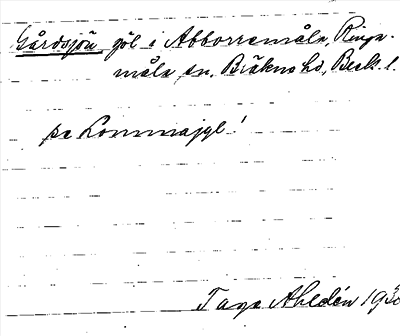 Gårdsjön göl i Abborremåla, Ringa-
måla sn. Bräkne hd, Blek. l.
se Lommajyl!
Tage Ahldén 1930